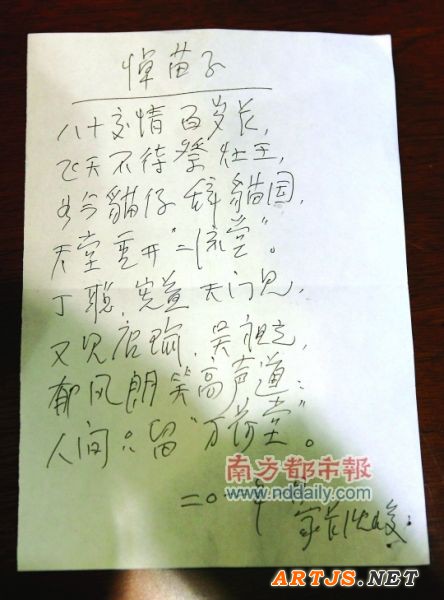 悼苗子
八十交情百岁长,
飞天不待祭灶王,
如今貓仔辞貓国,
天堂重开“二流堂”。
丁聪、宪益天门见,
又见唐瑜、吴祖光,
郁风朗笑高声道:
人间只留“万荷堂”。
南方都市報
www.nddaily.com
二〇一 年
家长沈峻
ARTJS.NET